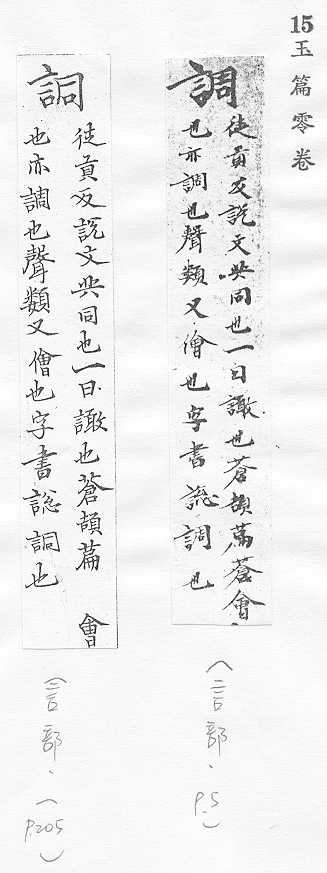 15
玉篇零卷
調
徒貢反説文共同也一曰譀也蒼頡萹蒼會
也亦調也聲類又儈也字書諗調也
(言部、P.5)
詷
徒貢反説文共同也一曰譀也蒼頡萹 會
也亦調也聲類又儈也字書諗詷也
(言部、(P.205)